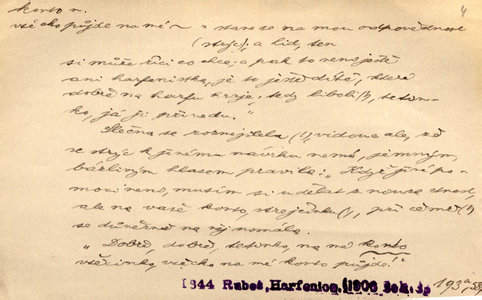 konto n.
všecko půjde na mé ~ a stane se na mou odpovědnost
(strýc); a lid, ten
si může říci co chce; a pak to není ještě
ani harfenistka, je to ještě dítě, které
dobře na harfu hraje; tedy libo-li(,) tetin-
ko, já ji přivedu."
Slečna se rozmýšlela (,) vidouc ale, že
se strýc k jinému návrhu nemá, jemným,
bázlivým hlasem pravila: „Když jiné po-
moci není, musím si udělat z nouze ctnost,
ale na vaše konto, strejčínku(,), při čemž(,)
se důvěrně na něj usmála.
„Dobře, dobře, tetinko, na mé konto
všecinko, všecko na mé konto půjde!"
1844 Rubeš, Harfenice, (1906
193
4